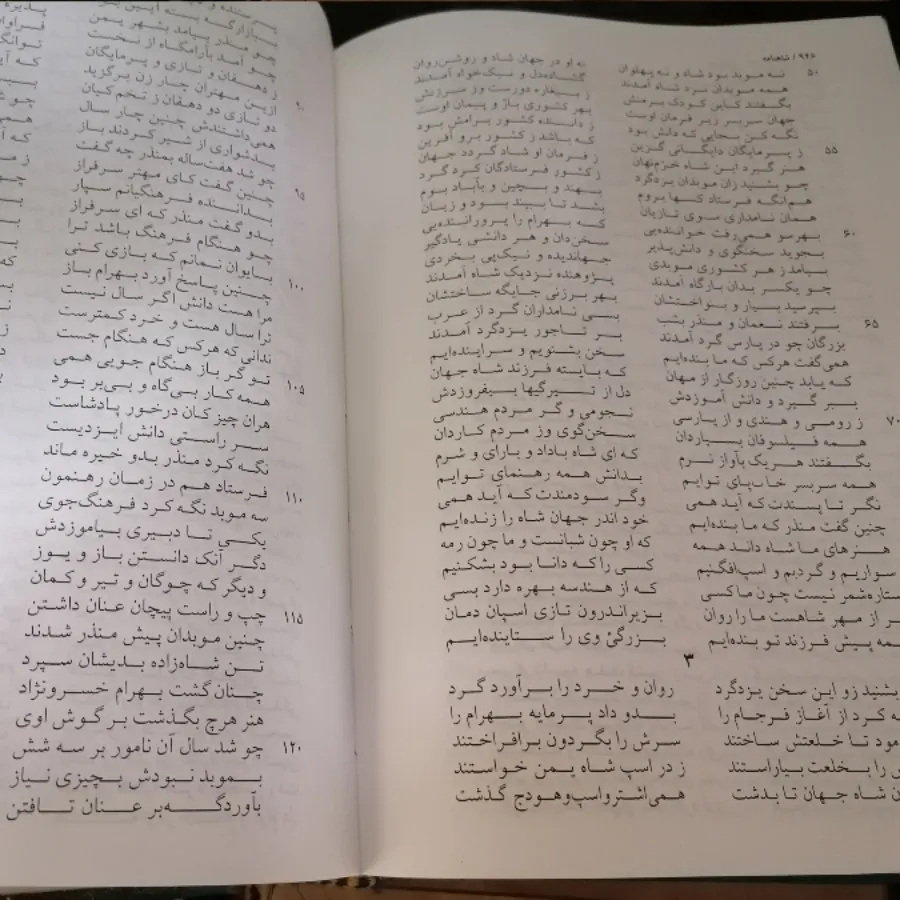 شاهنامه
۵۰ نه موبد بود شاه و نه پهلوان نه او در جهان شاه و روشن‌روان
همه موبدان نزد شاه آمدند گشاده‌دل و نیک‌خواه آمدند
بگفتند کاین کودک برمنش ز بیغاره دورست وز سرزنش
جهان سربسر زیر فرمان اوست بهر کشوری باژ و پیمان اوست
نگه کن بجایی که دانش بود ز داننده کشور برامش بود
۵۵ ز پرمایگان دایگانی گزین که باشد ز کشور برو آفرین
هنر گیرد این شاه خرم‌نهان ز فرمان او شاد گردد جهان
چو بشنید زان موبدان یزدگرد ز کشور فرستادگان کرد گرد
هم‌انگه فرستاد کسها بروم بهند و بچین و بآباد بوم
همان نامداری سوی تازیان بشد تا ببیند سود و زیان
۶۰ بهرسو همی‌رفت خواننده‌یی که بهرام را پروراننده‌یی
بجوید سخنگوی و دانش‌پذیر سخن‌دان و هر دانشی یادگیر
بیامد ز هر کشوری موبدی جهاندیده و نیک‌پی بخردی
چو یکسر بدان بارگاه آمدند پژوهنده نزدیک شاه آمدند
بپرسید بسیار و بنواختشان بهر برزنی جایگه ساختشان
۶۵ برفتند نعمان و منذر بشب بسی نامداران گرد از عرب
بزرگان چو در پارس گرد آمدند بر تاجور یزدگرد آمدند
همی‌گفت هرکس که ما بنده‌ایم سخن بشنویم و سراینده‌ایم
که یابد چنین روزگار از مهان که بایسته فرزند شاه جهان
ببر گیرد و دانش آموزدش دل از تیرگیها بیفروزدش
۷۰ ز رومی و هندی و از پارسی نجومی و گر مردم هندسی
همه فیلسوفان بسیاردان سخن‌گوی وز مردم کاردان
بگفتند هریک بآواز نرم که ای شاه باداد و بارای و شرم
همه سربسر خاک‌پای توایم بدانش همه رهنمای توایم
نگر تا پسندت که آید همی وگر سودمندت که آید همی
چنین گفت منذر که ما بنده‌ایم خود اندر جهان شاه را زنده‌ایم
هنرهای ما شاه داند همه که او چون شبانست و ما چون رمه
سواریم و گردیم و اسپ‌افگنیم کسی را که دانا بود بشکنیم
ستاره‌شمر نیست چون ما کسی که از هندسه بهره دارد بسی
از مهر شاهست ما را روان بزیراندرون تازی اسپان دمان
پیش فرزند تو بنده‌ایم بزرگی وی را ستاینده‌ایم
۳
بشنید زو این سخن یزدگرد روان و خرد را برآورد گرد
کرد از آغاز فرجام را بدو داد پرمایه بهرام را
تا خلعتش ساختند سرش را بگردون برافراختند
را بخلعت بیاراستند ز در اسپ شاه یمن خواستند
شاه جهان تا بدشت همی‌اشترواسپ‌وهودج گذشت
چو منذر بیامد بشهر یمن
چو آمد بآرامگاه از نخست
ز دهقان و تازی و پرمایگان
۹۰ ازین مهتران چار زن برگزید
دو تازی دو دهقان ز تخم کیان
همی داشتندش چنین چار سال
بدشواری از شیر کردند باز
چو شد هفت‌ساله بمنذر چه گفت
۹۵ چنین گفت کای مهتر سرفراز
بداننده فرهنگیانم سپار
بدو گفت منذر که ای سرفراز
چو هنگام فرهنگ باشد ترا
بایوان نمانم که بازی کنی
۱۰۰ چنین پاسخ آورد بهرام باز
مرا هست دانش اگر سال نیست
ترا سال هست و خرد کمترست
ندانی که هرکس که هنگام جست
تو گر باز هنگام جویی همی
۱۰۵ همه کار بی‌گاه و بی‌بر بود
هران چیز کان درخور پادشاست
سر راستی دانش ایزدیست
نگه کرد منذر بدو خیره ماند
فرستاد هم در زمان رهنمون
۱۱۰ سه موبد نگه کرد فرهنگ‌جوی
یکی تا دبیری بیاموزدش
دگر آنک دانستن باز و یوز
و دیگر که چوگان و تیر و کمان
چپ و راست پیچان عنان داشتن
۱۱۵ چنین موبدان پیش منذر شدند
تن شاه‌زاده بدیشان سپرد
چنان‌گشت بهرام خسرونژاد
هنر هرچ بگذشت بر گوش اوی
۱۲۰ چو شد سال آن نامور بر سه شش
بموبد نبودش بچیزی نیاز
بآوردگه‌بر عنان تافتن